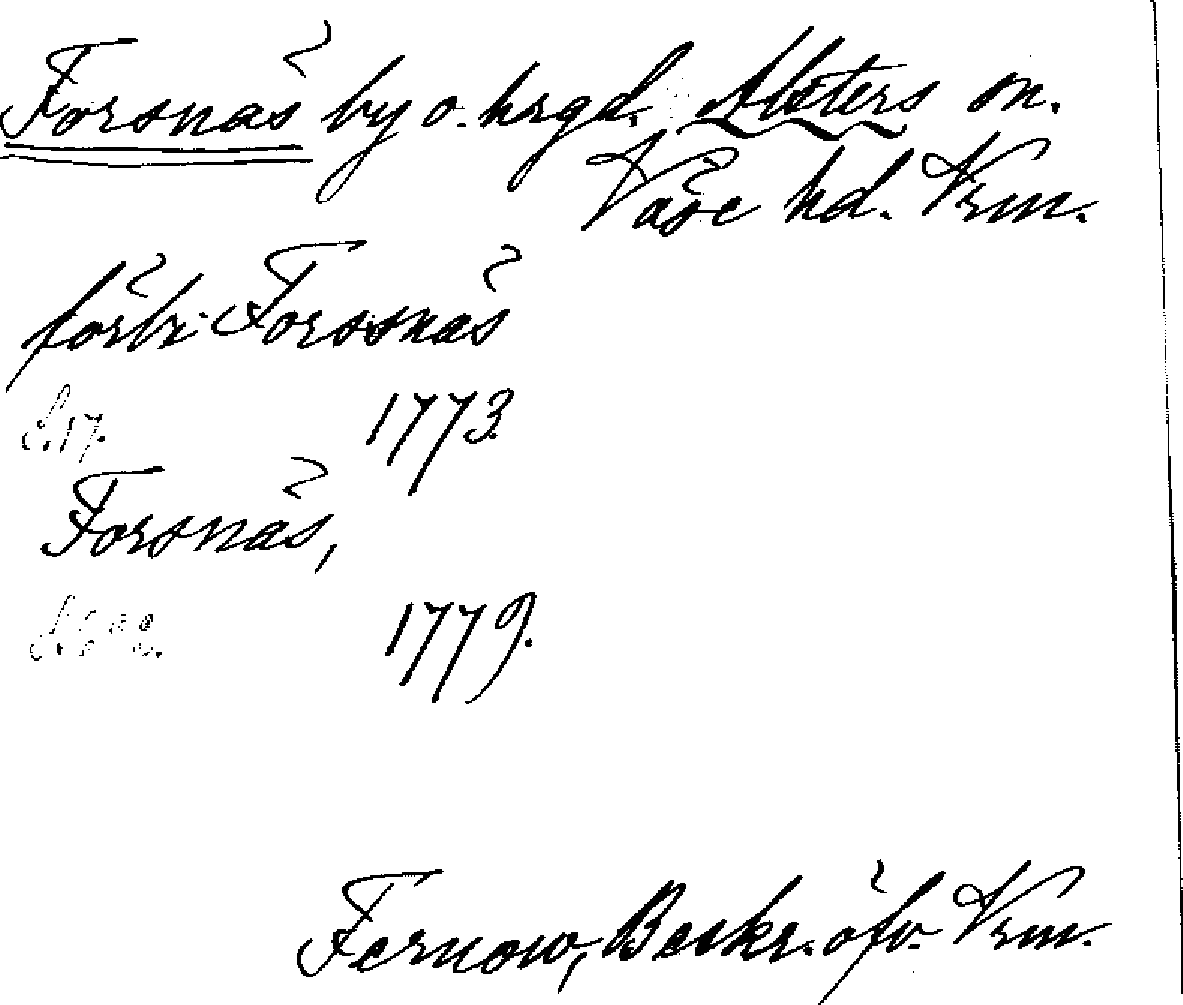 Forsnäs by o. hrgd. Alsters sn.
Väse hd. Vrm.
förbi Forssnäs
S. 17. 1773.
Forsnäs,
1779.
Fernow, Beskr. öfv. Vrm.